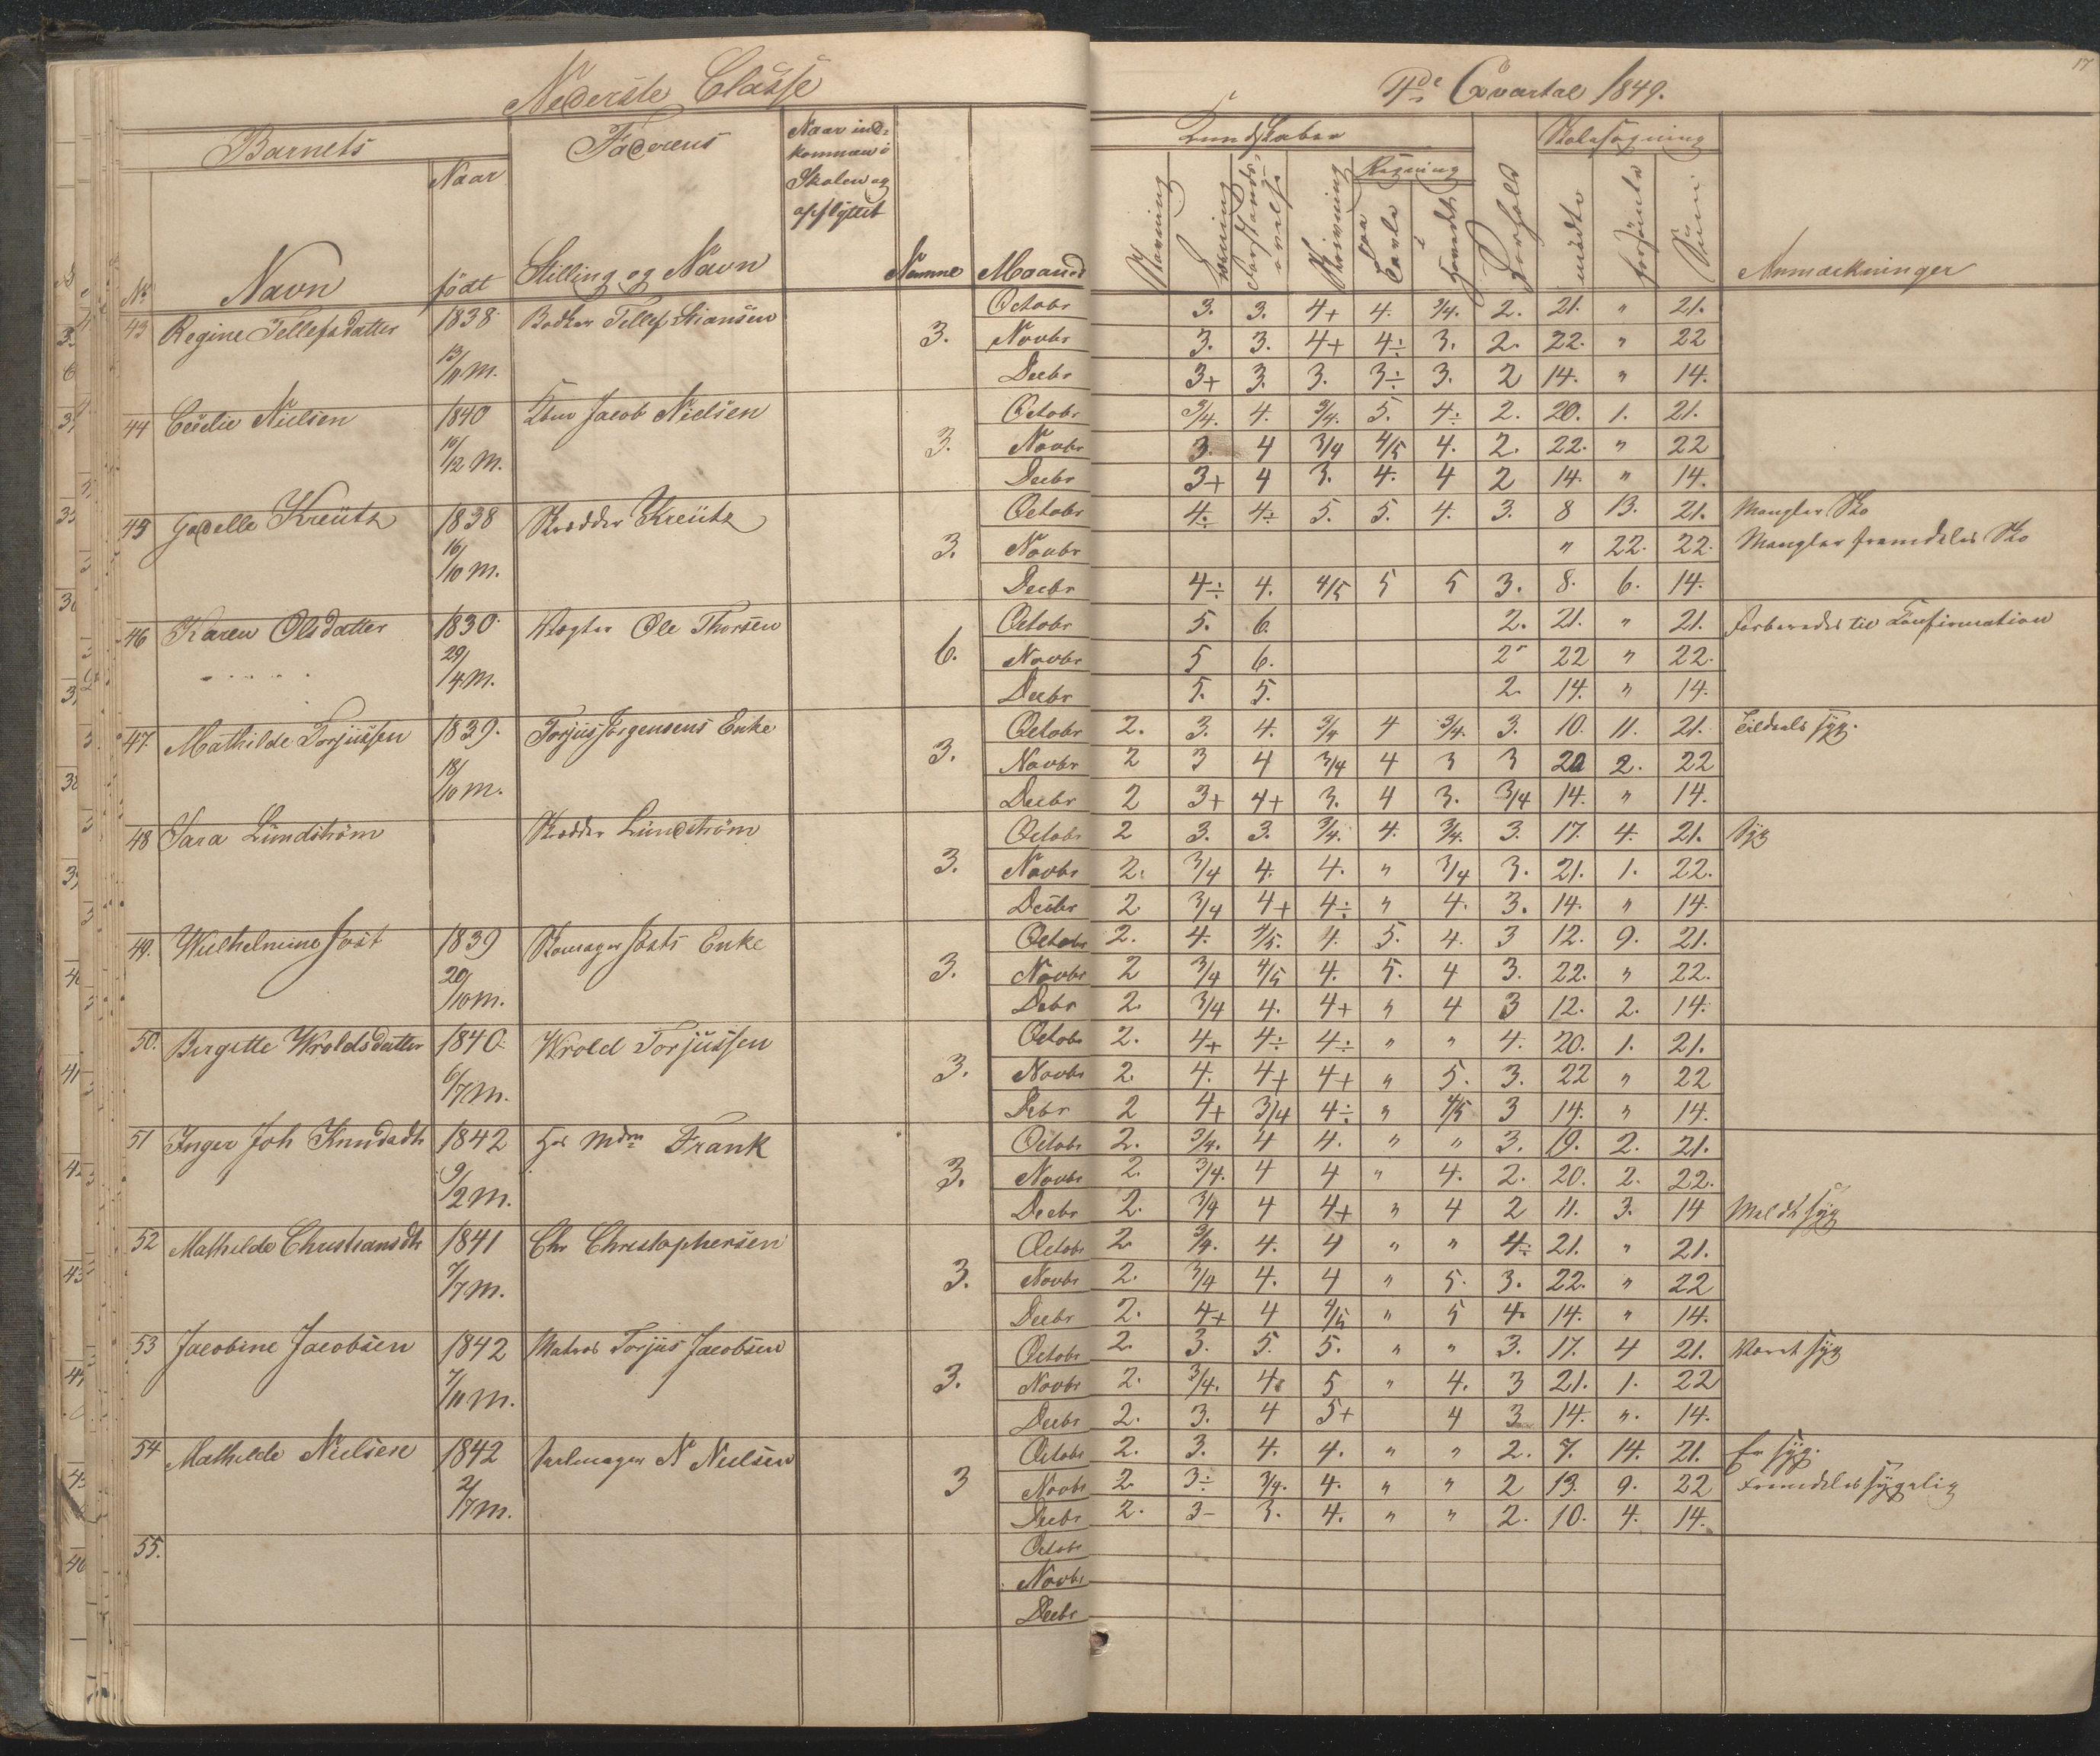 Nederste Classe
Barnets
Faderens
Naar ind-
kommen i
Skolen og
opflyttet
Nr
Navn
Naar
födt
Stilling og Navn
Numme
Maaned
43 Regine Tellefsdatter 1838 13/11 M. Bödker Tellef Stiansen 3.
44 Cecilie Nielsen 1840 10/12 M. Jacob Nielsen 3.
45 Godelle Kreütz 1838 16/10 M. Skrædder Kreütz 3.
46 Karen Olsdatter 1830 29/4 M. Vægter Ole Thorsen 6.
47 Mathilde Torjussen 1839. 18/10 M. Torjus Jörgensens Enke 3.
48 Sara Lündström Skrædder Lündström 3.
49. Wilhelmine Jost 1839 20/10 M. Skomager Josts Enke 3.
50. Birgitte Wroldsdatter 1840. 6/7 M. Wrold Torjussen 3.
51 Inger Joh Knudsdtr 1842 9/2 M. Hos Mdm Frank 3.
52 Mathilde Christiansdtr 1841 7/7 M. Chr Christophersen 3.
53 Jacobine Jacobsen 1842 7/11 M. Matros Torjus Jacobsen 3.
54 Mathilde Nielsen 1842 2/7 M. Seilmager N Nielsen 3
55.
4de Qvartal 1849.
17
Kundskaber
Skolesøgning
Stavning
Læsning
Forstands-
øvelse
Skrivning
Regning
paa
Tavle
i
Hovedet
Forhold
mødte
forsömte
Sum
Anmærkninger
Octobr 3. 3. 4+ 4. 3/4. 2. 21. " 21.
Novbr 3. 3. 4+ 4÷ 3. 2. 22. " 22
Decbr 3+ 3. 3. 3÷ 3. 2 14. " 14.
Octobr 3/4. 4. 3/4. 5. 4÷ 2. 20. 1. 21.
Novbr 3. 4 3/4 4/5 4. 2. 22. " 22
Decbr 3+ 4 3. 4. 4 2 14. " 14.
Octobr 4÷ 4÷ 5. 5. 4. 3. 8 13. 21. Mangler Sko
Novbr " 22. 22. Mangler fremdeles Sko
Decbr 4÷ 4. 4/5 5 5 3. 8. 6. 14.
Octobr 5. 6. 2. 21. " 21. forberedes til Konfirmation
Novbr 5 6. 2 22 " 22.
Decbr 5. 5. 2. 14. " 14.
Octobr 2. 3. 4. 3/4 4 3/4. 3. 10. 11. 21. tildeels syg.
Novbr 2 3 4 3/4 4 3 3 20 2. 22
Decbr 2 3+ 4+ 3. 4 3. 3/4 14. " 14.
Octobr 2 3. 3. 3/4. 4. 3/4. 3. 17. 4. 21. Syg
Novbr 2. 3/4 4. 4. " 3/4 3. 21. 1. 22.
Decbr 2 3/4 4+ 4÷ " 4. 3. 14. " 14.
Octobr 2. 4. 4/5. 4. 5. 4. 3 12. 9. 21.
Novbr 2 3/4 4/5 4. 5. 4 3. 22. " 22.
Debr 2. 3/4 4. 4+ " 4 3 12. 2. 14.
Octobr 2. 4+ 4÷ 4÷ " " 4. 20. 1. 21.
Novbr 2. 4. 4+ 4+ " 5. 3. 22 " 22
Debr 2 4+ 3/4 4÷ " 4/5 3 14. " 14.
Octobr 2. 3/4. 4 4. " " 3. 19. 2. 21.
Novbr 2. 3/4. 4 4 " 4. 2. 20. 2. 22.
Decbr 2. 3/4 4 4+ " 4 2 11. 3. 14 Meldt syg
Octobr 2 3/4. 4. 4 " " 4÷ 21. " 21.
Novbr 2. 3/4 4. 4 " 5. 3. 22. " 22
Decbr 2. 4+ 4 4/5 " 5 4. 14. " 14.
Octobr 2. 3. 5. 5. " " 3. 17. 4 21. Været syg
Novbr 2. 3/4. 4. 5 " 4. 3 21. 1. 22
Decbr 2. 3. 4 5+ 4 3 14. ". 14.
Octobr 2. 3. 4. 4. " " 2. 7. 14. 21. Er syg.
Novbr 2. 3÷ 3/4. 4. " " 2 13. 9. 22 Fremdeles sygelig
Decbr 2. 3- 3. 4. " " 2. 10. 4. 14.
Octobr
Novbr
Decbr